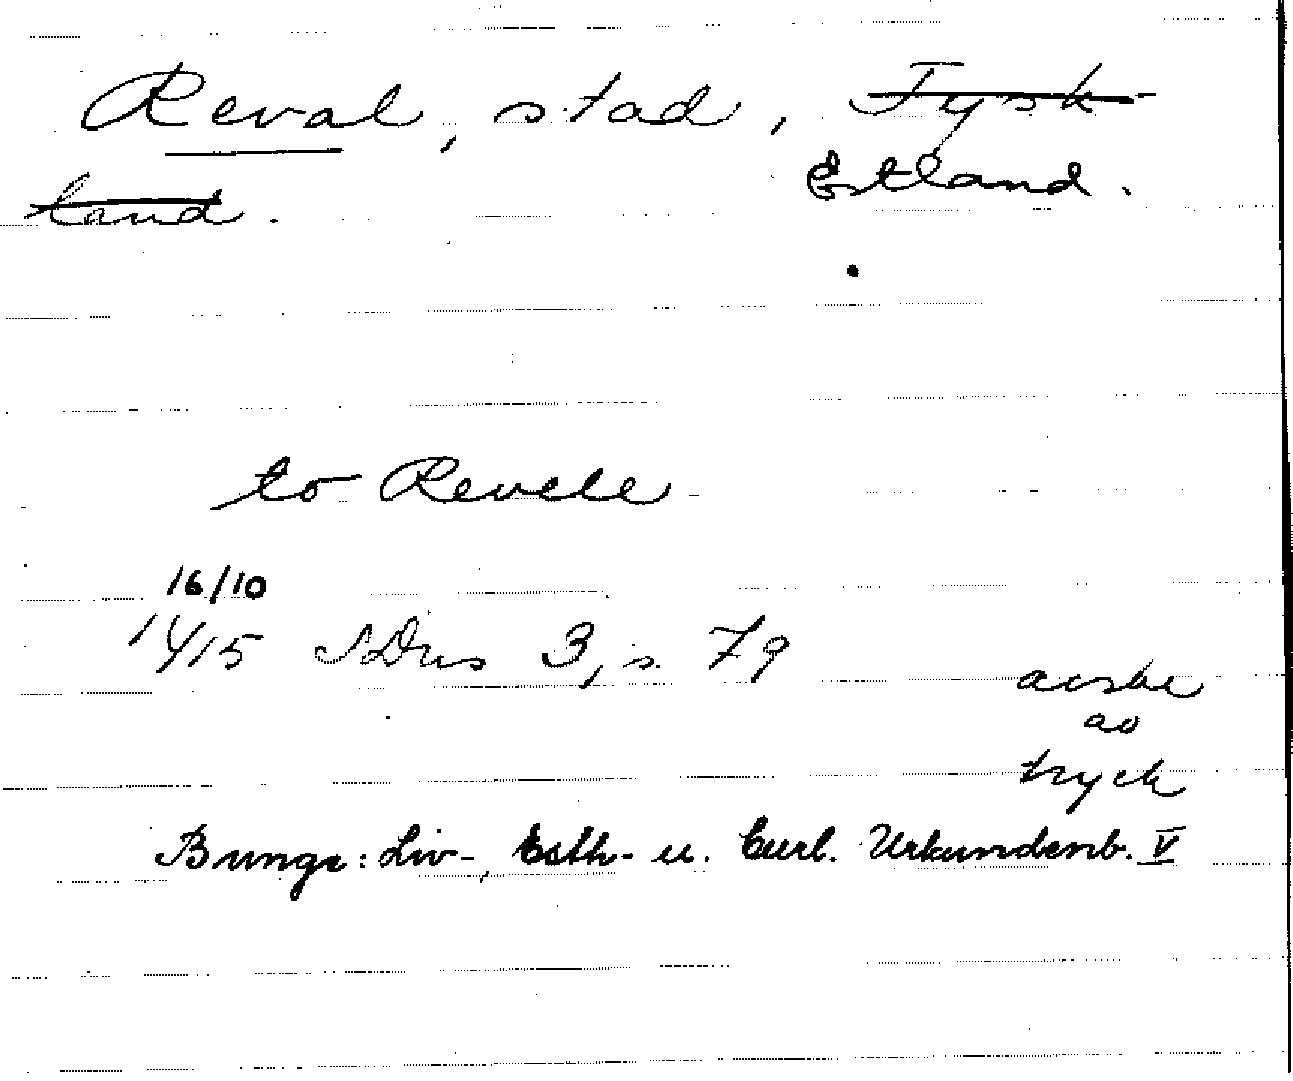 Reval, stad, Tysk-
Estland.
land.
to Revele
16/10
1415 SDns 3, s. 79
avskr
ao
tryck
Bunge: Liv-, Esth- u. Curl. Urkundenb. V